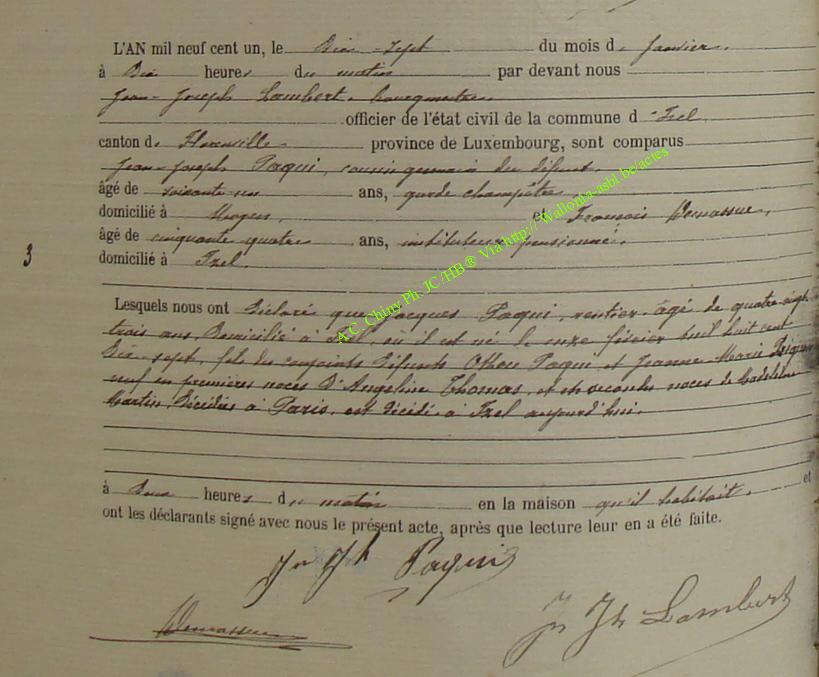 L'AN mil neuf cent un, le Dix-Sept du mois de Janvier,
à Dix heures du matin par devant nous
Jean-Joseph Lambert, bourgmestre
officier de l'état civil de la commune d'Izel
canton de Florenville province de Luxembourg, sont comparus
Jean-Joseph Paqui, cousin germain du défunt
âgé de soixante-un ans, garde champêtre
domicilié à et François
âgé de cinquante quatre ans, instituteur pensionné,
3
domicilié à Izel
Lesquels nous ont Déclaré que Jacques Paqui, rentier âgé de quatre-vingt
trois ans, Domicilié à Izel, où il est né le onze février huit cent
Dix-sept, fils des conjoints Défunts Paqui et Jeanne-Marie
veuf en premières noces D'Angeline Thomas, et en secondes noces de Madeleine
Martin, Décédées à Paris, est Décédé à Izel aujourd'hui
à Deux heures du matin en la maison qu'il habitait, et
ont les déclarants signé avec nous le présent acte, après que lecture leur en a été faite.
Jn Jh Paqui
Jn Jh Lambert
A.C. Chiny Ph. JC/HB® Via http://Wallonia-asbl.be/actes